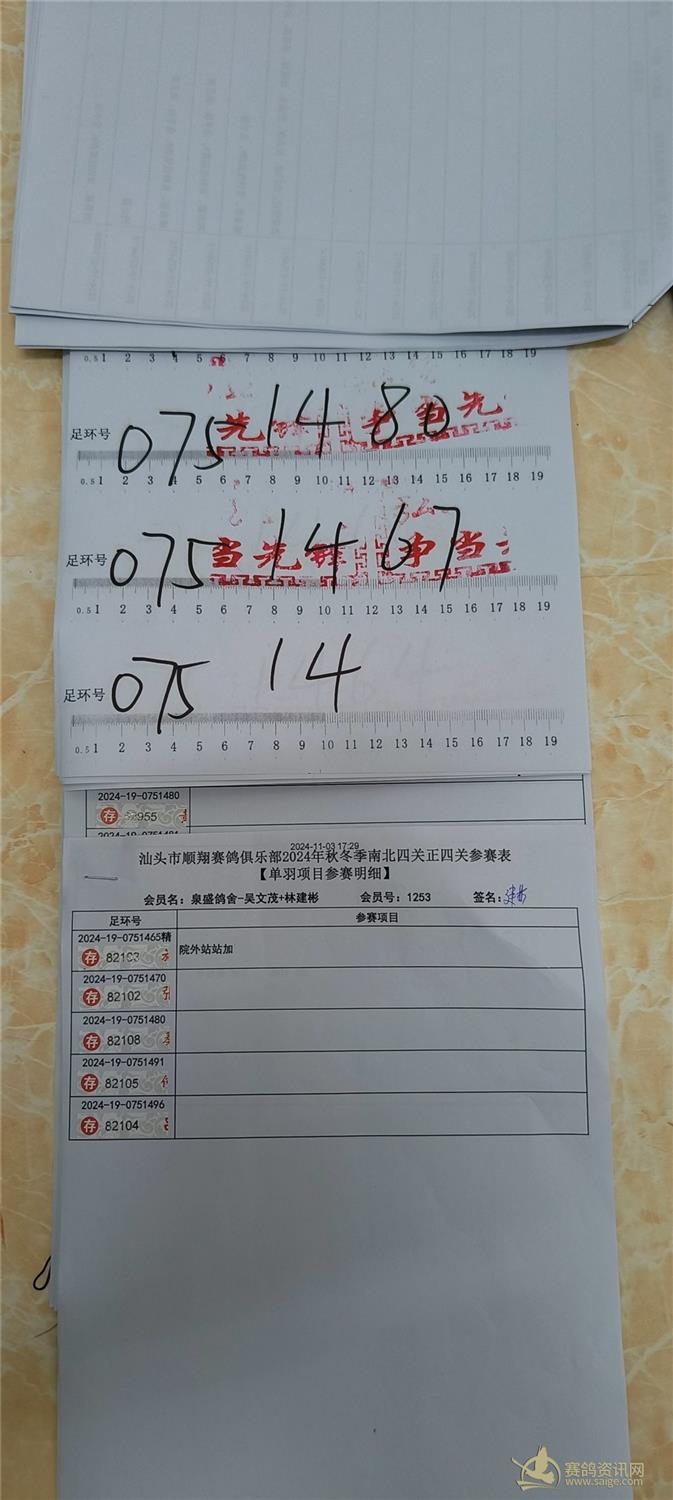 0.5 1 2 3 4 5 6 7 8 9 10 11 12 13 14 15 16 17 18 19
足环号 075 14 80
先锋 争当先
0.5 1 2 3 4 5 6 7 8 9 10 11 12 13 14 15 16 17 18 19
足环号 075 14 67
当先锋 争当
0.5 1 2 3 4 5 6 7 8 9 10 11 12 13 14 15 16 17 18 19
足环号 075 14
0.5 1 2 3 4 5 6 7 8 9 10 11 12 13 14 15 16 17 18 19
2024-19-0751480
存
2024-11-03 17:29
汕头市顺翔赛鸽俱乐部2024年秋冬季南北四关正四关参赛表
【单羽项目参赛明细】
会员名：泉盛鸽舍-吴文茂+林建彬 会员号：1253 签名：建彬
足环号 参赛项目
2024-19-0751465精
存 82103 院外站站加
2024-19-0751470
存 82102
2024-19-0751480
存 82108
2024-19-0751491
存 82105
2024-19-0751496
存 82104
赛鸽资讯网
www.saige.com